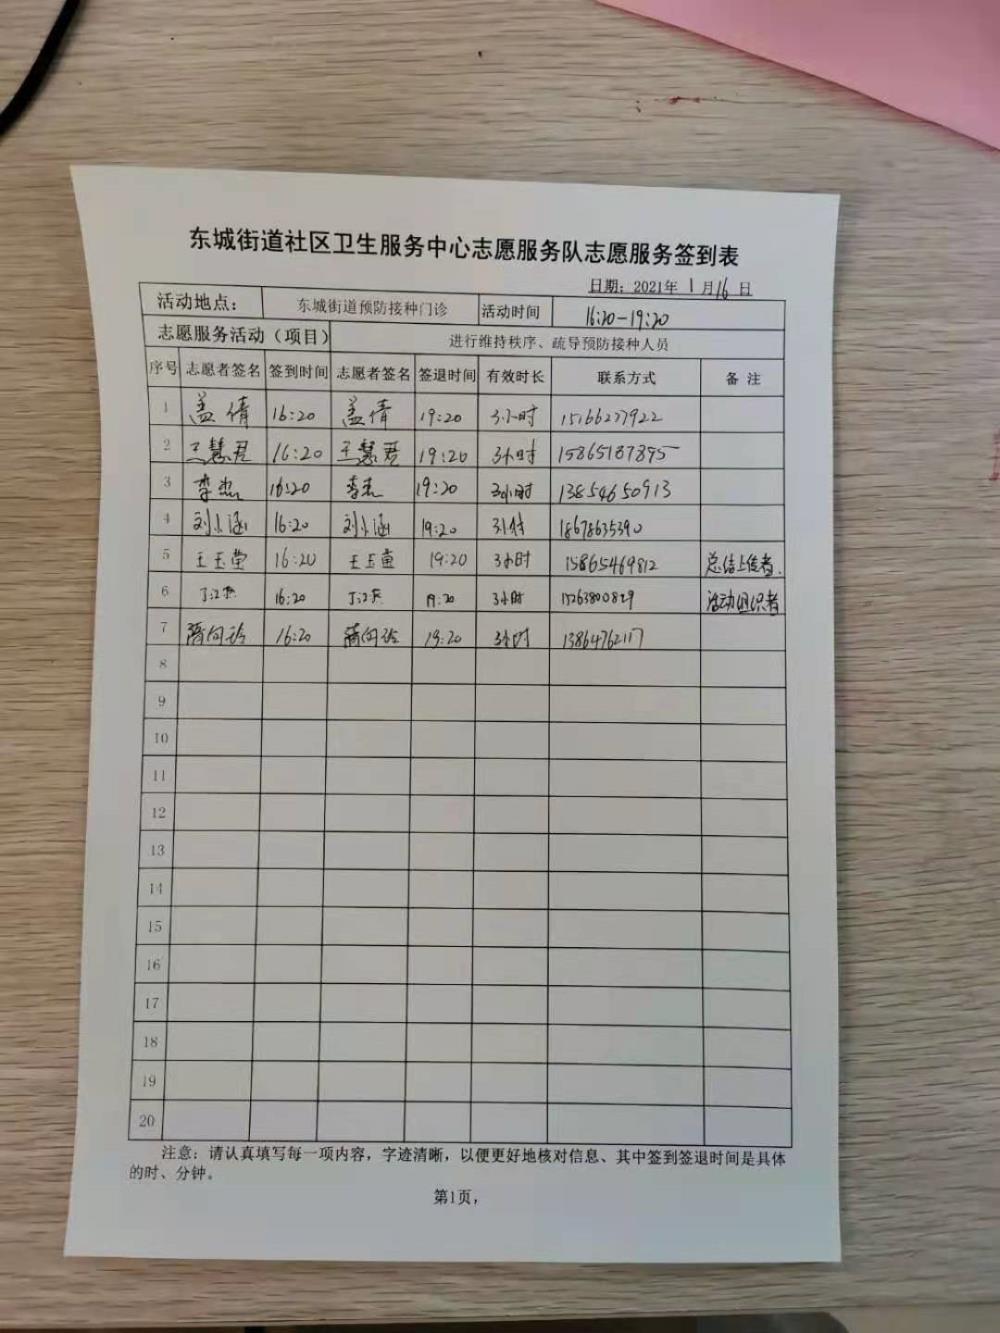 东城街道社区卫生服务中心志愿服务队志愿服务签到表
日期：2021年 1月16日
活动地点： 东城街道预防接种门诊 活动时间 16:20-19:20
志愿服务活动（项目） 进行维持秩序、疏导预防接种人员
序号 志愿者签名 签到时间 志愿者签名 签退时间 有效时长 联系方式 备 注
1 盖倩 16:20 盖倩 19:20 3小时 15166237922
2 王慧君 16:20 王慧君 19:20 3小时 15865187895
3 李杰 16:20 李杰 19:20 3小时 13854650913
4 刘 涵 16:20 刘 涵 19:20 3小时 18678635390
5 王玉莹 16:20 王玉莹 19:20 3小时 15865469812 总结上传者.
6 16:20 19:20 3小时 15263800829 活动组织者
7 16:20 19:20 3小时
8
9
10
11
12
13
14
15
16
17
18
19
20
注意：请认真填写每一项内容，字迹清晰，以便更好地核对信息、其中签到签退时间是具体
的时、分钟。
第1页，